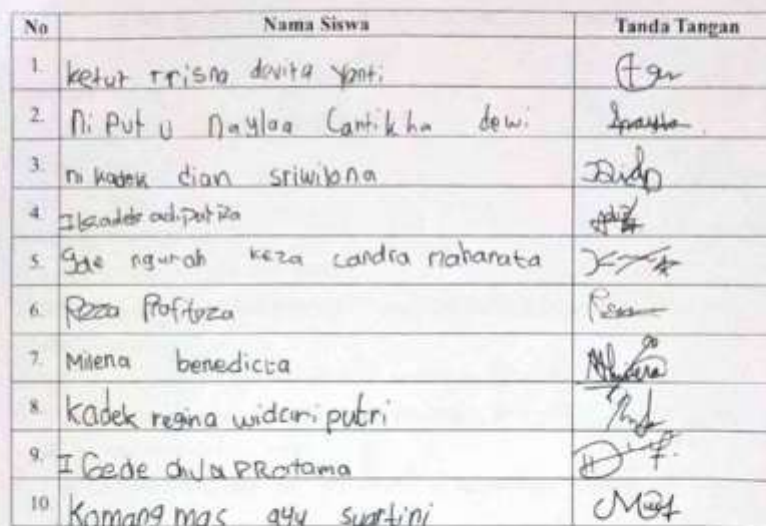 No Nama Siswa Tanda Tangan
1. ketut trisna devita yanti
2. ni Putu naylaa Cantikha dewi
3. ni kadek dian sriwilona
4. I kadek adi putra
5. gde ngurah keza candra mahanata
6. Reza
7. Milena benedicta
8. kadek regina widari putri
9. I Gede PRatama
10 Komang mas ayu suartini